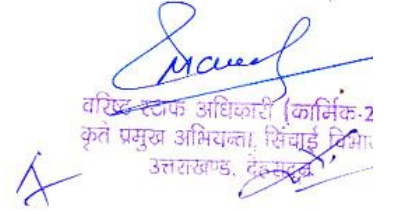 वरिष्ठ स्टाफ अधिकारी (कार्मिक-2
कृते प्रमुख अभियन्ता, सिंचाई विभा
उत्तराखण्ड, देहरादून